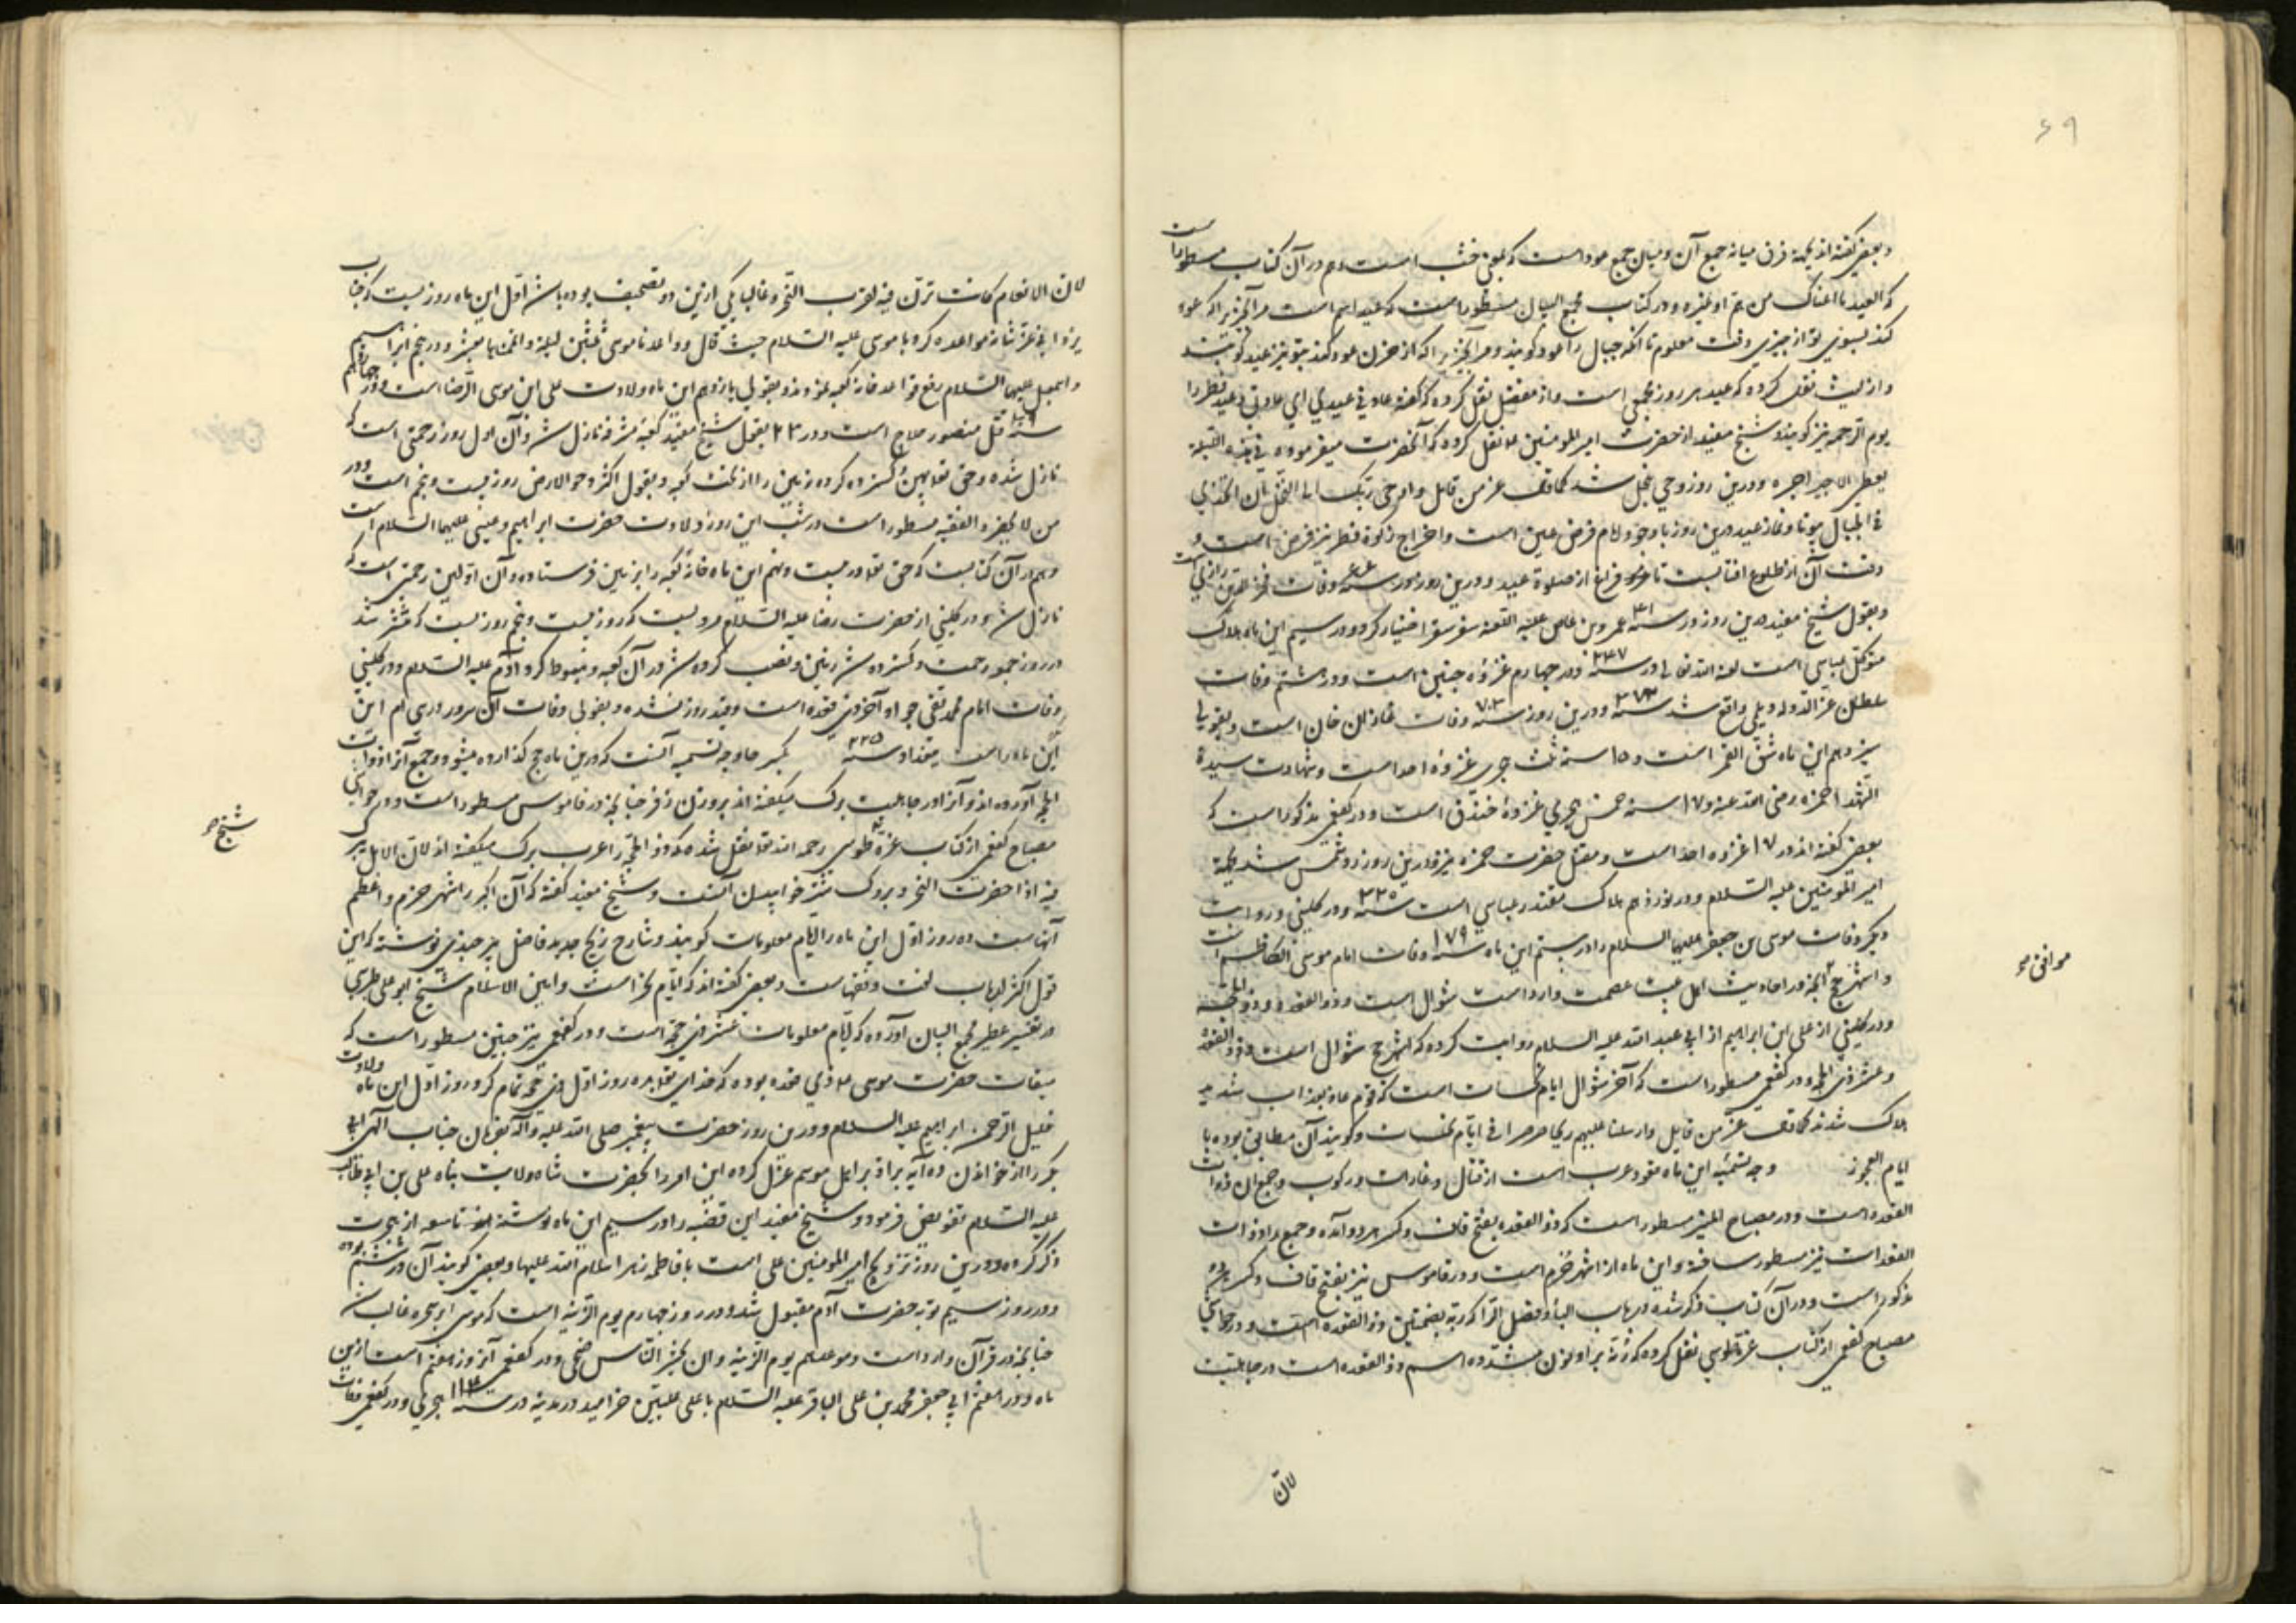 ۶۹
و بعضی گفته‌اند بجهة فرق میانه جمع آن و میان جمع عود است که بمعنی خشب است و هم در آن کتاب مسطور است
که العید ما اعتاک من هم او غیره و در کتاب مجمع البیان مسطور است که عید اسم است مر آنچیز را که عود
کند بسوی تو از چیزی وقت معلوم تا آنکه جبال را عود کویند و مر آنچیز را که از حزن عود کند بتو نیز عید کویند
و از لیث نقل کرده که عید هر روز مجمعی است و از مفضل نقل کرده که گفته عاد فی عیدی ای عادتی و عید فطر را
یوم الرحمه نیز کویند و شیخ مفید از حضرت امیر المومنین ع نقل کرده که آنحضرت میفرموده
یعطی الاجیر اجره و درین روز وحی بنحل شد کما قال عز من قائل و اوحی ربک الی النحل ان اتخذی
من الجبال بیوتا و نماز عید درین روز با وجود امام فرض عین است و اخراج زکوة فطر نیز فرض است و
وقت آن از طلوع افتابست تا فراغ از صلوة عید و درین روز در سنه وفات فخر الدین رازیست
و بقول شیخ مفید درین روز در سنه ۴۱ عمرو بن عاص علیه اللعنه سفر سقر اختیار کرد و در سیم این ماه هلاک
متوکل عباسی است لعنه الله تعالی در سنه ۲۴۷ و در چهارم غزوه حنین است و در هشتم وفات
سلطان عز الدوله دیلمی واقع شد سنه ۳۷۳ و درین روز سنه ۷۰۳ وفات غازان خان است و بقولی
سیزدهم این ماه شق القمر است و ۱۵ سنه ثلث هجری غزوه احد است و شهادت سید
الشهدا حمزه رضی الله عنه و ۱۷ سنه خمس هجری غزوه خندق است و در کفعمی مذکور است که
بعضی گفته‌اند در ۱۷ غزوه احد است و مقتل حضرت حمزه نیز و درین روز رد شمس شد بجهة
امیر المومنین علیه السلام و در نوزدهم هلاک مقتدر عباسی است سنه ۳۲۵ و در کلینی و روایت
دیکر وفات موسی بن جعفر علیهما السلام را در بیستم این ماه سنه ۱۷۹ وفات امام موسی الکاظم است
و اشهر حج آنچه در احادیث اهل بیت عصمت وارد است شوال است و ذو القعده و ذو الحجه
و در کلینی از علی ابن ابراهیم از ابی عبد الله علیه السلام روایت کرده که اشهر حج شوال است و ذو القعده
و عشر ذی الحجه و در کفعمی مسطور است که آخر شوال ایام نحسات است که قوم عاد بعذاب شدید
هلاک شدند کما قال عز من قائل و ارسلنا علیهم ریحا صرصرا فی ایام نحسات و کویند آن مطابق بوده با
ایام العجوز وجه تسمیه این ماه قعود عرب است از قتال و غارت و رکوب و جمع آن ذوات
القعده است و در مصباح المنیر مسطور است که ذو القعده بفتح قاف و کسر هر دو آمده و جمع را ذوات
القعدات نیز مسطور ساخته و این ماه از اشهر حُرم است و در قاموس نیز بفتح قاف و کسر هر دو
مذکور است و در آن کتاب ذکر شده در باب الباء و فصل الرا که ربّه بضمتین ذو القعده است و در حواشی
مصباح کفعمی از کتاب غرّه طوسی نقل کرده که رنّه برا و نون مشدده اسم ذو القعده است در جاهلیت
موافق مر
لان
لان الانعام کانت ترن فیه لقرب النحر و غالبا یکی ازین دو تصحیف بوده باشد اول این ماه روزیست که جناب
یزدانی عز شانه مواعده کرد با موسی علیه السلام حیث قال و واعدنا موسی ثلثین لیلة و اتممناها بعشر و در پنجم ابراهیم
و اسمعیل علیهما السلام رفع قواعد خانه کعبه نمودند و بقولی یازدهم این ماه ولادت علی ابن موسی الرضا است
سنه قتل منصور حلاج است و در ۲۳ بقول شیخ مفید کعبه مشرفه نازل شد و آن اول روز رحمتی است که
نازل شده و حق تعالی پهن و گسترده کرده زمین را از تحت کعبه و بقول اکثر دحو الارض روز بیست و پنجم است و در
من لا یحضره الفقیه مسطور است در شب این روز ولادت حضرت ابراهیم و عیسی علیهما السلام است
و هم در آن کتابست که حق تعالی در بیست و نهم این ماه خانه کعبه را بزمین فرستاده و آن اولین رحمتی است که
نازل شد و در کلینی از حضرت رضا علیه السلام مرویست که روز بیست و پنجم روزیست که منتشر شد
در روز رحمت و گسترده شد زمین و نصب کرده شد در آن کعبه و هبوط کرد آدم علیه السلام و در کلینی
وفات امام محمد تقی جواد آخر ذی قعده است و قید روز نشده و بقولی وفات آن سرور در سی ام این
این ماه است ببغداد سنه ۲۲۵ بکسر حا وجه تسمیه آنست که درین ماه حج گذارده میشود و جمع آنرا ذوات
الحجه آورده‌اند و آنرا در جاهلیت برک میگفته‌اند بروزن زفر چنانچه در قاموس مسطور است و در حواشی
مصباح کفعمی از کتاب غرّه طوسی رحمه الله تعالی نقل شده که ذو الحجه را عرب برک میگفته‌اند لان الابل تبرک
فیه اذا حضرت النحر و بروک شتر خوابیدن آنست و شیخ مفید گفته که آن اکبر اشهر حرم و اعظم
آنهاست و ده روز اول این ماه را ایام معلومات کویند و شارح زیج جدید فاضل بیرجندی نوشته که این
قول اکثر ارباب لغت و فقهاست و بعضی گفته‌اند که ایام نحر است و امین الاسلام شیخ ابو علی طبرسی
در تفسیر مجمع البیان آورده که ایام معلومات عشر ذی حجه است و در کفعمی نیز چنین مسطور است که
میقات حضرت موسی ع ذی قعده بوده که خدای تعالی بده روز اول ذی حجه تمام کرد و روز اول این ماه ولادت
خلیل الرحمن ابراهیم علیه السلام و درین روز حضرت پیغمبر صلی الله علیه و آله بفرمان جناب الهی ابی
بکر را از خواندن ده آیه براة بر اهل موسم عزل کرده این امر را بحضرت شاه ولایت پناه علی بن ابی طالب
علیه السلام تفویض فرمود و شیخ مفید این قضیه را در سیم این ماه نوشته تاسعه از هجرت
ذکر کرده و درین روز تزویج امیر المومنین علی است با فاطمه زهرا سلام الله علیها و بعضی کویند آن در ششم بوده
و در روز سیم توبه حضرت آدم مقبول شد و در روز چهارم یوم الزینه است که موسی بر سحره غالب شد
چنانچه در قرآن وارد است و موعدهم یوم الزینه و ان یحشر الناس ضحی و در کفعمی آنروز هفتم است ازین
ماه و در هفتم ابی جعفر محمد بن علی الباقر علیه السلام باعلی علیین خرامید در مدینه در سنه ۱۱۴ هجری و در کفعمی وفات
شیخ مر